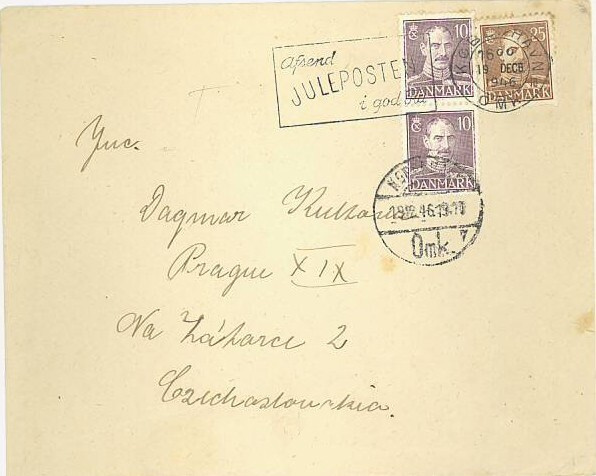 Afsend
JULEPOSTEN
i god tid
10
DANMARK
10
DANMARK
25
DANMARK
KØBENHAVN
19 DECB
1946
OMK
19.12.46.19-
Omk. 7
Dagmar
Prague XIX
Na Zátorce 2
Czechoslovakia.